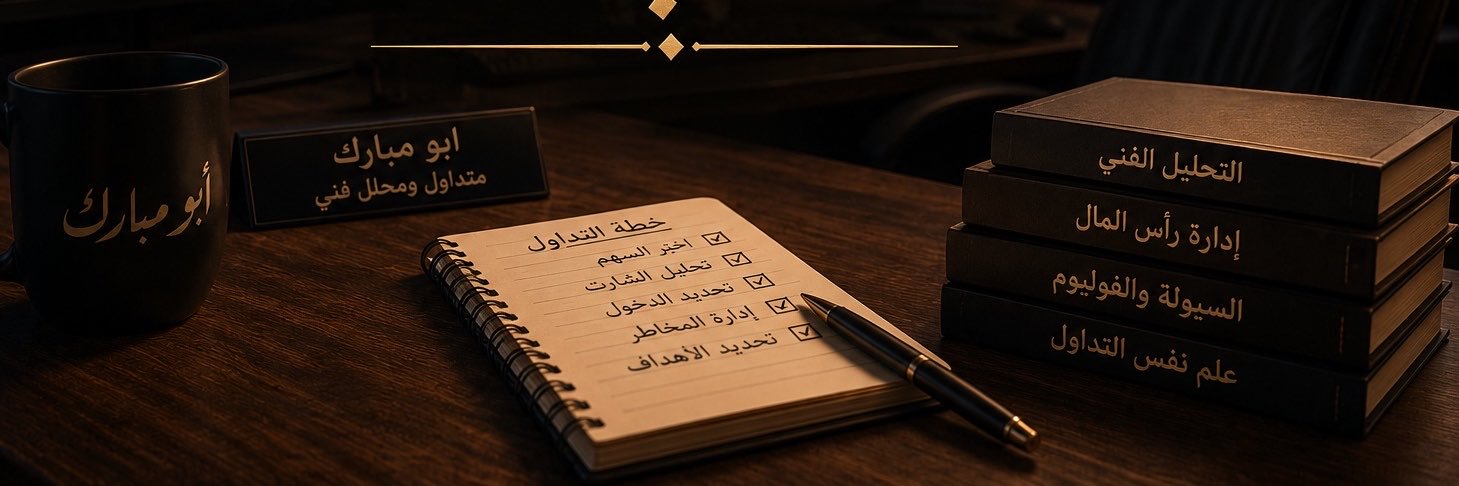 أبو مبارك
ابو مبارك
متداول ومحلل فني
خطة التداول
اختر السهم
تحليل الشارت
تحديد الدخول
إدارة المخاطر
تحديد الأهداف
التحليل الفني
إدارة رأس المال
السيولة والفوليوم
علم نفس التداول